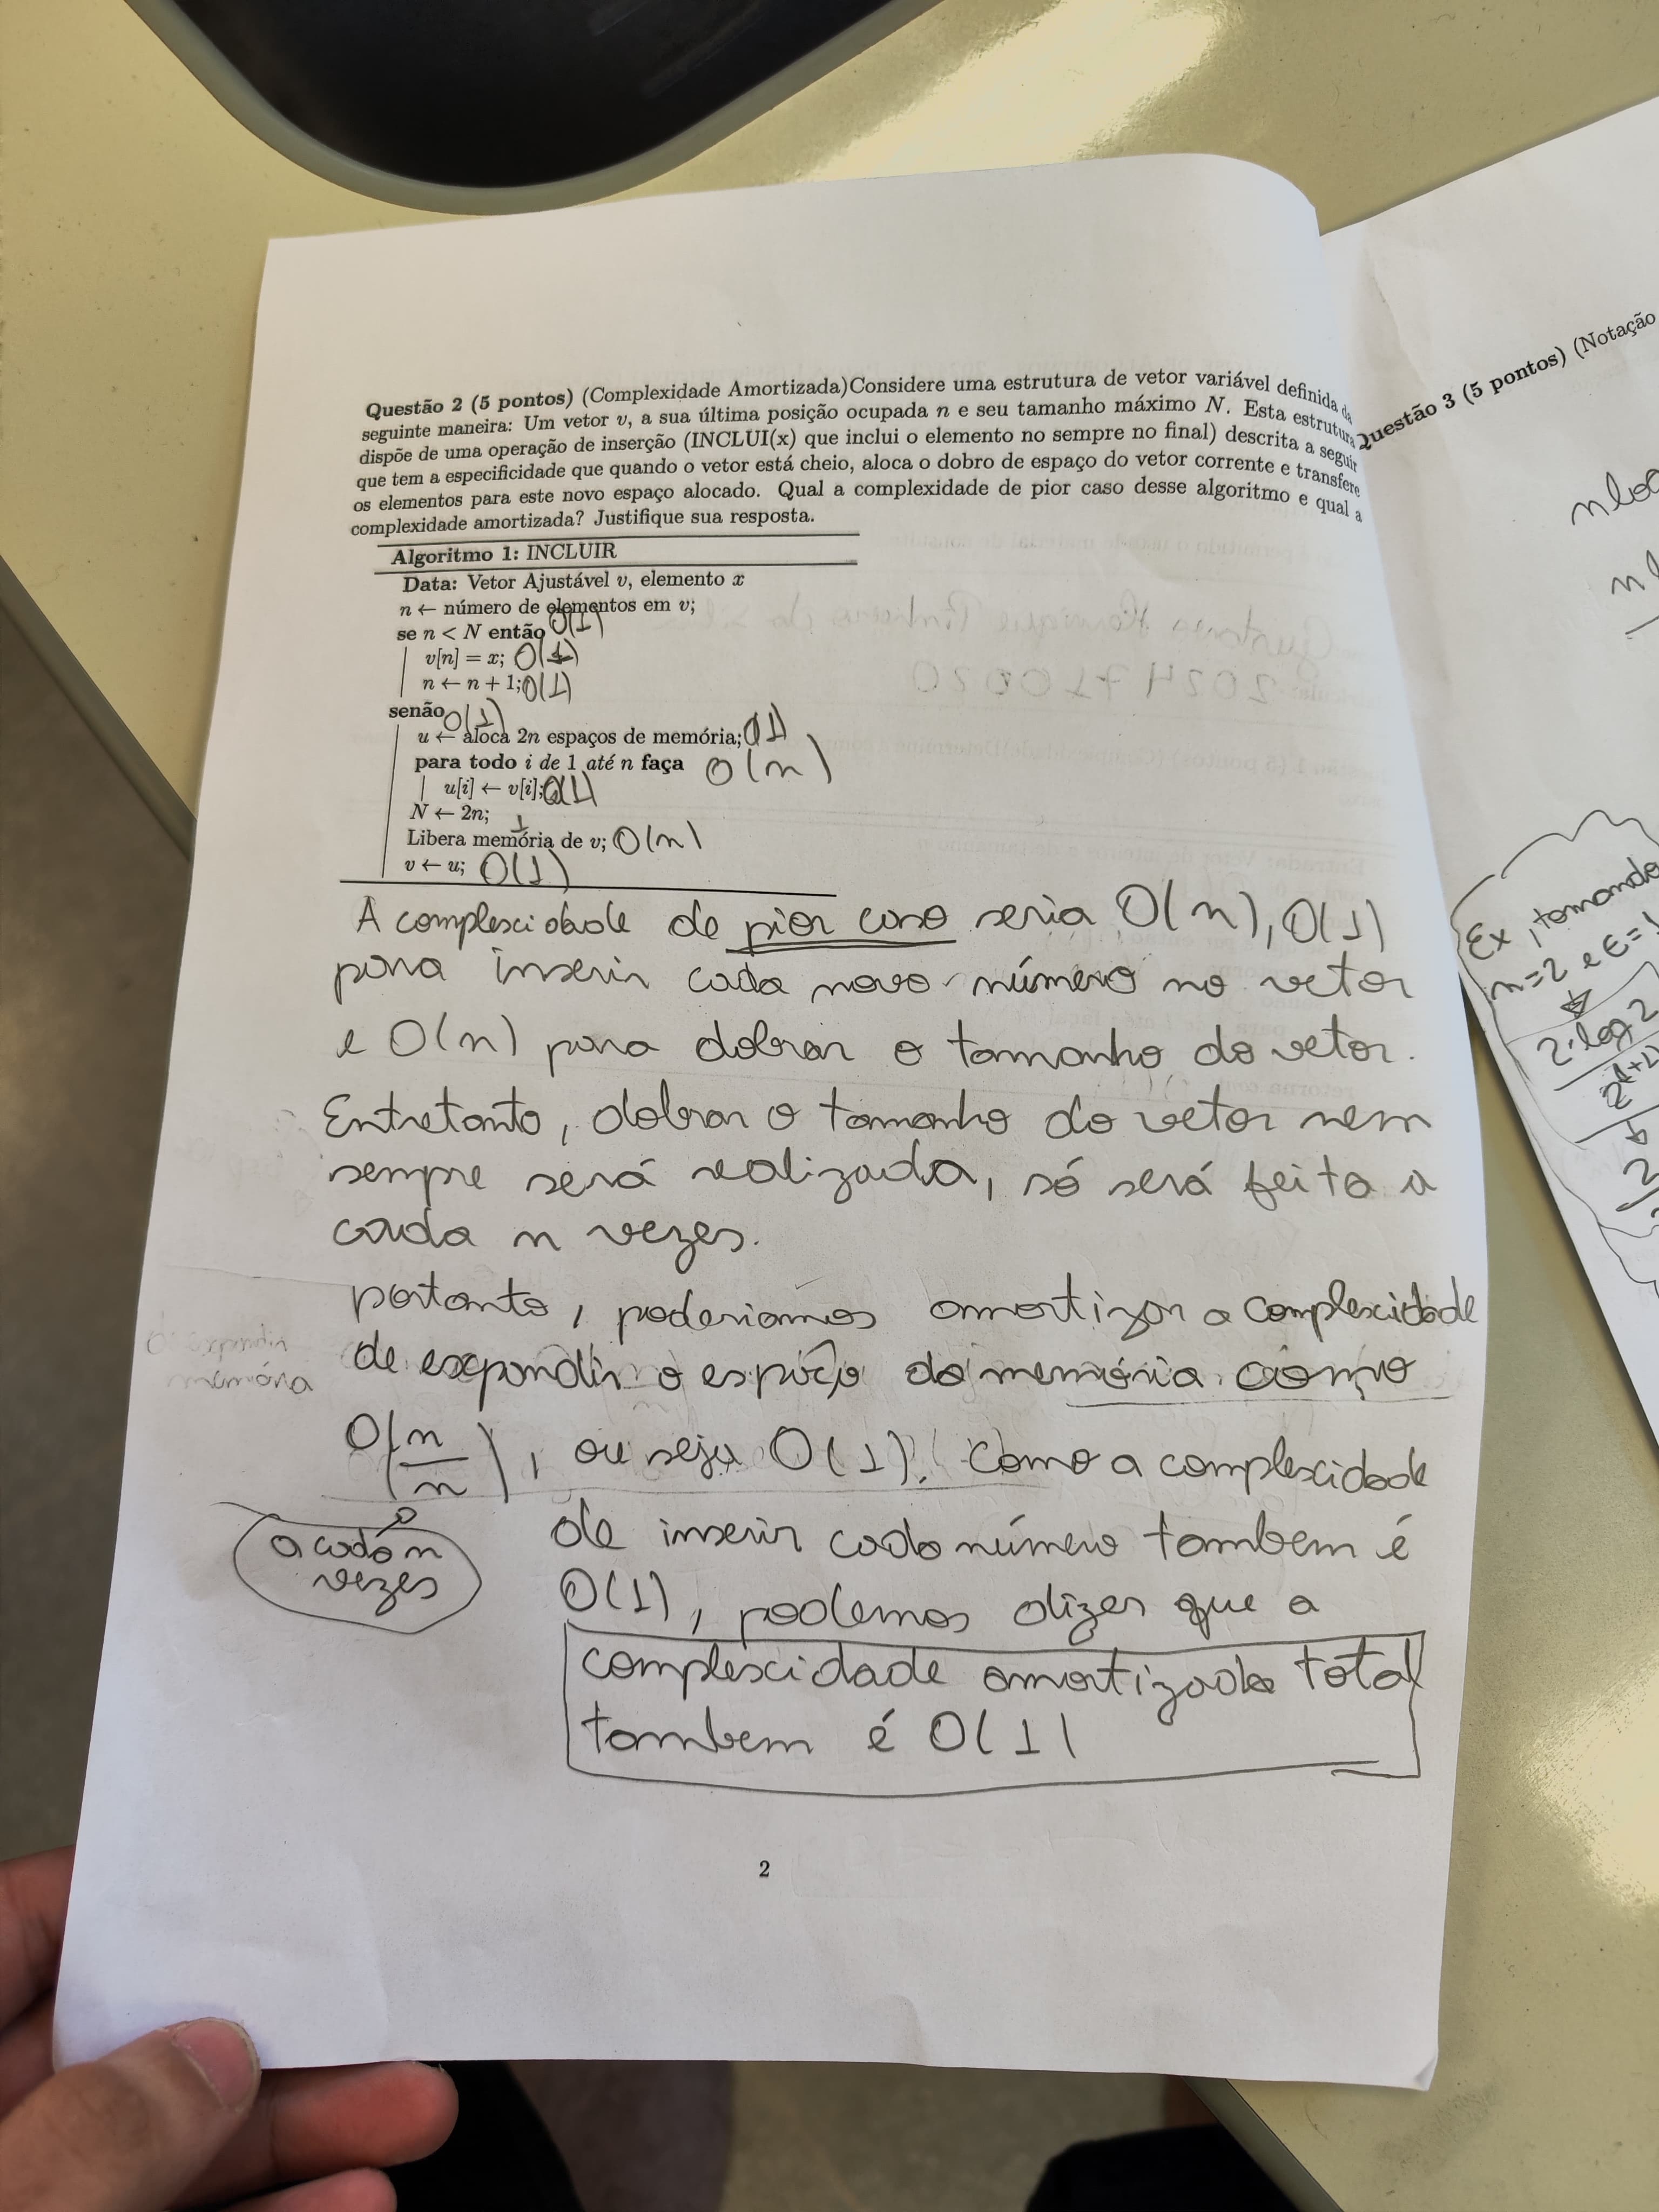 Questão 2 (5 pontos) (Complexidade Amortizada)Considere uma estrutura de vetor variável definida da
seguinte maneira: Um vetor v, a sua última posição ocupada n e seu tamanho máximo N. Esta estrutura
dispõe de uma operação de inserção (INCLUI(x) que inclui o elemento no sempre no final) descrita a seguir
que tem a especificidade que quando o vetor está cheio, aloca o dobro de espaço do vetor corrente e transfere
os elementos para este novo espaço alocado. Qual a complexidade de pior caso desse algoritmo e qual a
complexidade amortizada? Justifique sua resposta.
Algoritmo 1: INCLUIR
Data: Vetor Ajustável v, elemento x
n ← número de elementos em v;
se n < N então O(1)
v[n] = x; O(1)
n ← n + 1; O(1)
senão O(1)
u ← aloca 2n espaços de memória; O1
para todo i de 1 até n faça O(n)
u[i] ← v[i]; O(1)
N ← 2n; 1
Libera memória de v; O(n)
v ← u; O(1)
A complexidade de pior caso seria O(n), O(1)
para inserir cada novo número no vetor
e O(n) para dobrar o tamanho do vetor.
Entretanto, dobrar o tamanho do vetor nem
sempre será realizada, só será feita a
cada n vezes.
portanto, poderiamos amortizar a complexidade
de expandir o espaço da memória como
O(n/n), ou seja O(1). Como a complexidade
a cada n
vezes
de inserir cada número tambem é
O(1), podemos dizer que a
complexidade amortizada total
tambem é O(1)
2
Questão 3 (5 pontos) (Notação
Ex, tomando
n=2 e ϵ=1
2·log 2
2
expandir
memória